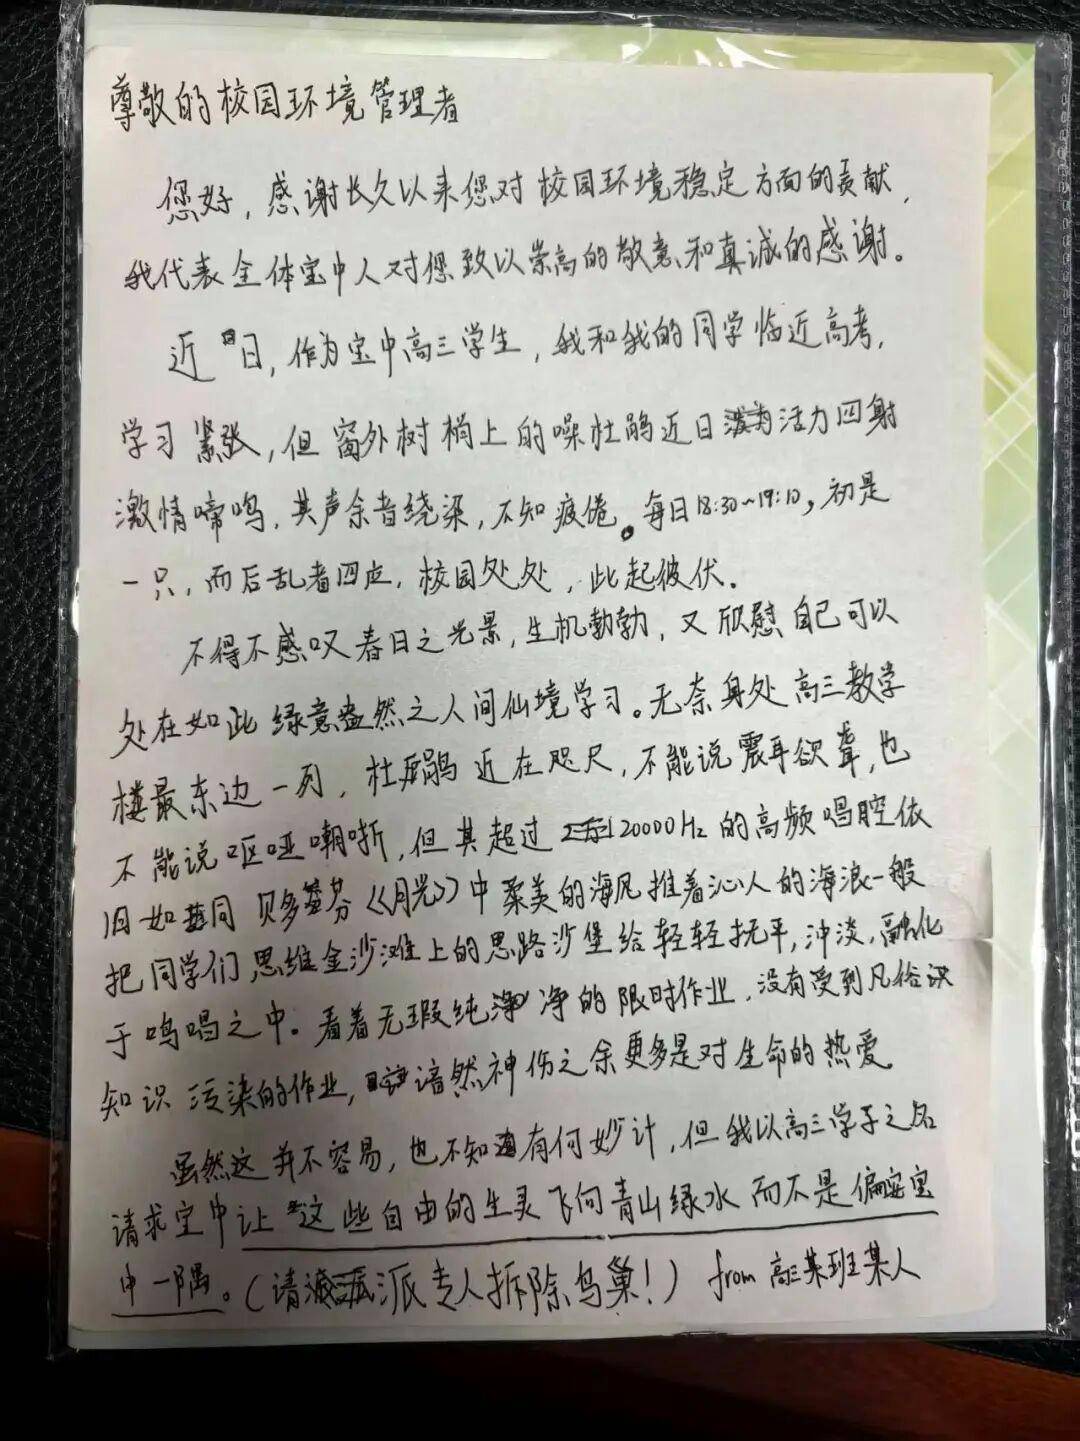 尊敬的校园环境管理者
您好，感谢长久以来您对校园环境稳定方面的贡献，
我代表全体宝中人对您致以崇高的敬意和真诚的感谢。
近日，作为宝中高三学生，我和我的同学临近高考，
学习紧张，但窗外树梢上的噪杜鹃近日活力四射
激情啼鸣，其声余音绕梁，不知疲倦。每日18:30~19:10，初是
一只，而后乱者四应，校园处处，此起彼伏.
不得不感叹春日之光景，生机勃勃，又欣慰自己可以
处在如此绿意盎然之人间仙境学习。无奈身处高三教学
楼最东边一列，杜鹃近在咫尺，不能说震耳欲聋，也
不能说呕哑嘲哳，但其超过20000Hz的高频唱腔依
旧如同贝多芬《月光》中柔美的海风推着沁人的海浪一般
把同学们思维金沙滩上的思路沙堡给轻轻抚平，冲淡，融化
于鸣唱之中。看着无瑕纯净的限时作业，没有受到凡俗识
知识污染的作业，谙然神伤之余更多是对生命的热爱
虽然这并不容易，也不知有何妙计，但我以高三学子之名
请求宝中让这些自由的生灵飞向青山绿水而不是偏安宝
中一隅。（请派专人拆除鸟巢！） from 高三某班某人